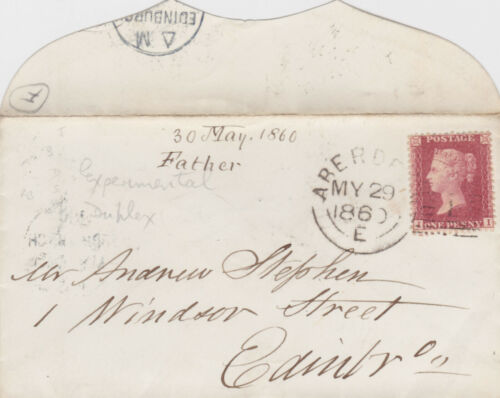 EDINBURG
A M
30 May. 1860
Father
Experimental
Duplex
ABERDE
MY 29
1860
E
POSTAGE
ONE PENNY
Mr Andrew Stephen
1 Windsor Street
Edinbro